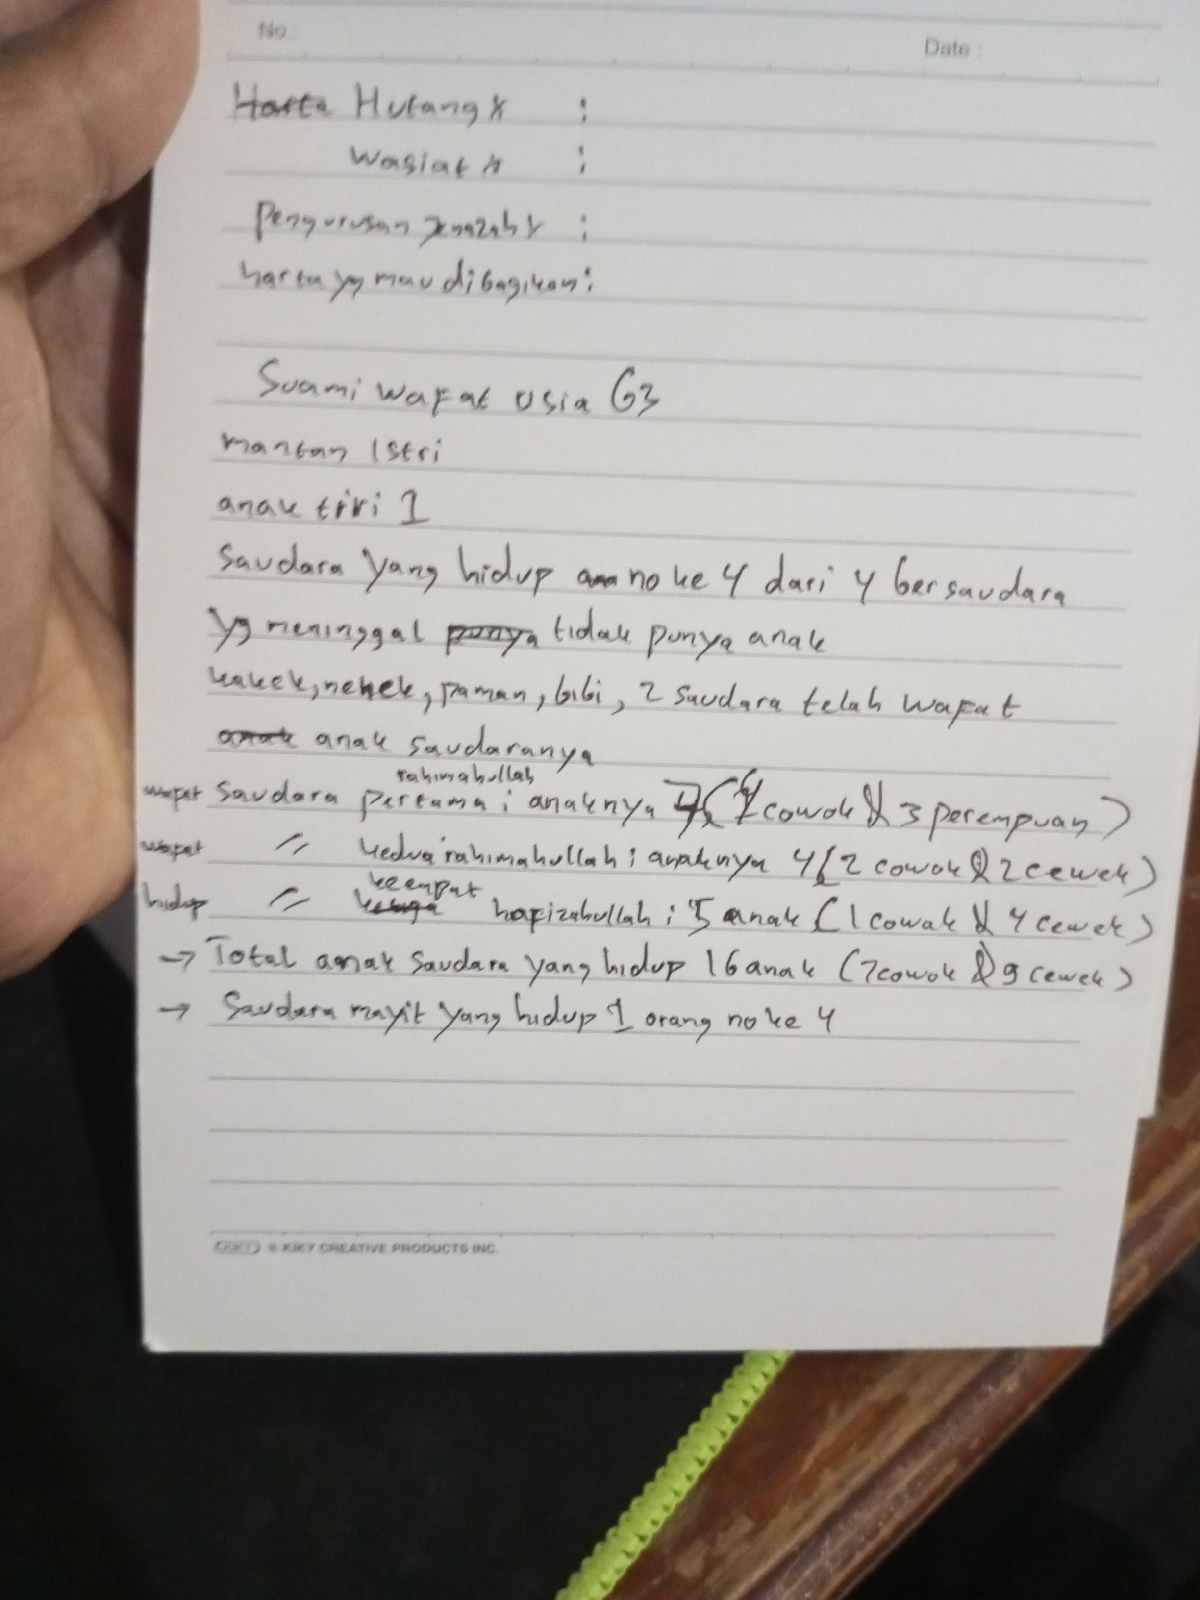 No.:
Date :
Harta Hutang x :
Wasiat x :
Pengurusan Jenazah x :
harta yg mau dibagikan :
Suami wafat usia 63
mantan Istri
anak tiri 1
Saudara yang hidup no ke 4 dari 4 bersaudara
Yg meninggal punya tidak punya anak
kakek, nenek, paman, bibi, 2 saudara telah wafat
anak anak saudaranya
rahimahullah
wafat Saudara pertama : anaknya 7 (4 cowok & 3 perempuan)
wafat " kedua rahimahullah : anaknya 4 (2 cowok & 2 cewek)
keempat
hidup " ketiga hafizahullah : 5 anak (1 cowok & 4 cewek)
→ Total anak Saudara yang hidup 16 anak (7 cowok & 9 cewek)
→ Saudara mayit yang hidup 1 orang no ke 4
KIKY © KIKY CREATIVE PRODUCTS INC.